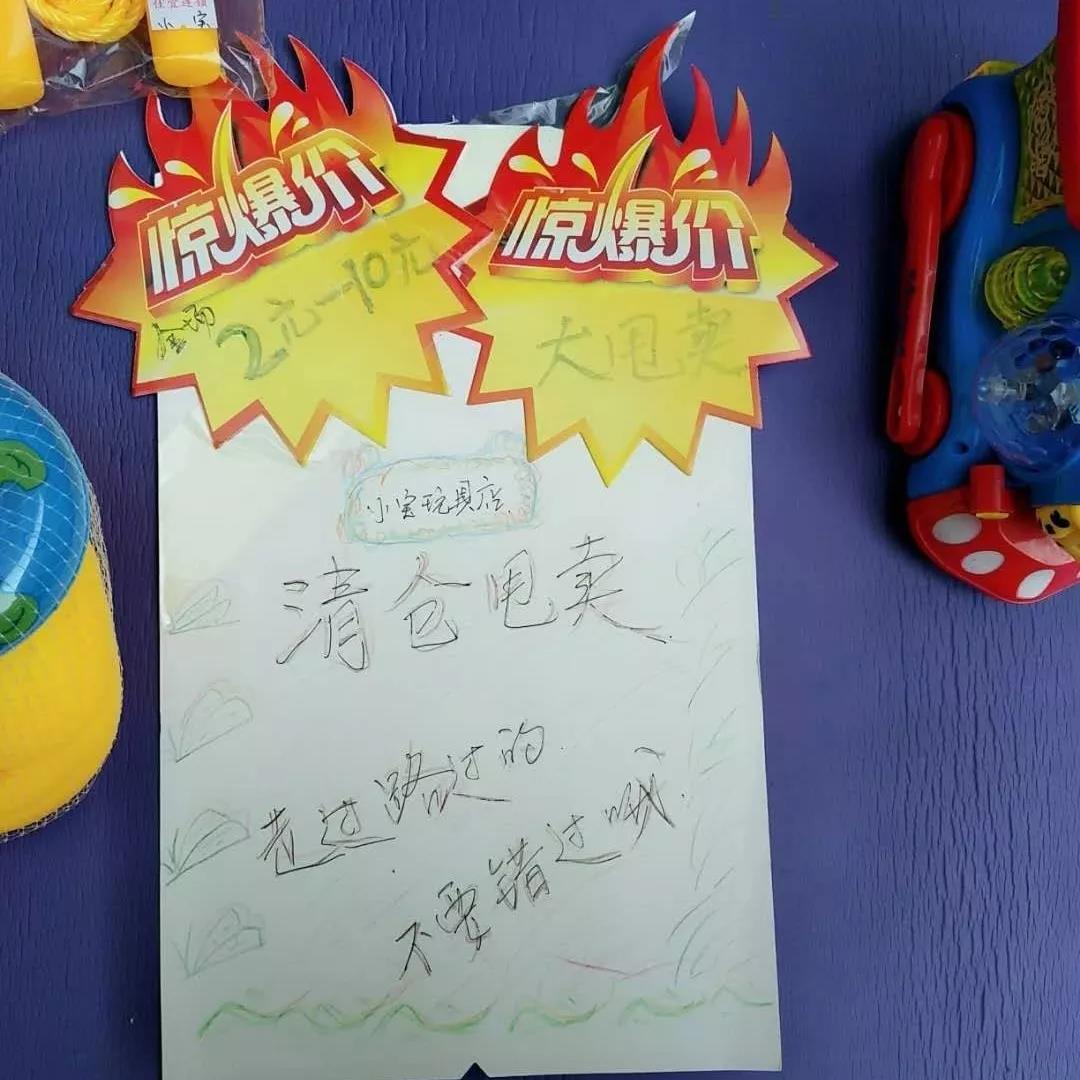 佳壹连锁
小宝
惊爆价
全场 2元-10元
惊爆价
大甩卖
小宝玩具店
清仓甩卖
走过路过的
不要错过哦